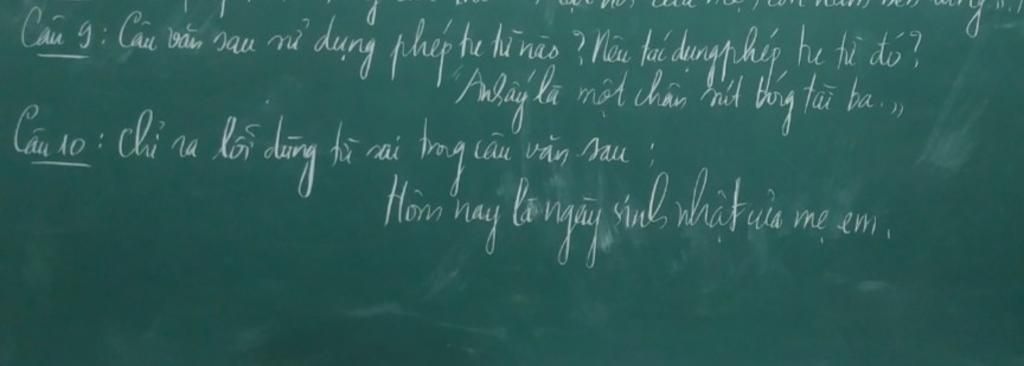 của mẹ, con
Câu 9: Câu văn sau sử dụng phép tu từ nào? Nêu tác dụng phép tu từ đó?
"Anh ấy là một chân sút bóng tài ba."
Câu 10: Chỉ ra lỗi dùng từ sai trong câu văn sau:
Hôm nay là ngày sinh nhật của mẹ em.